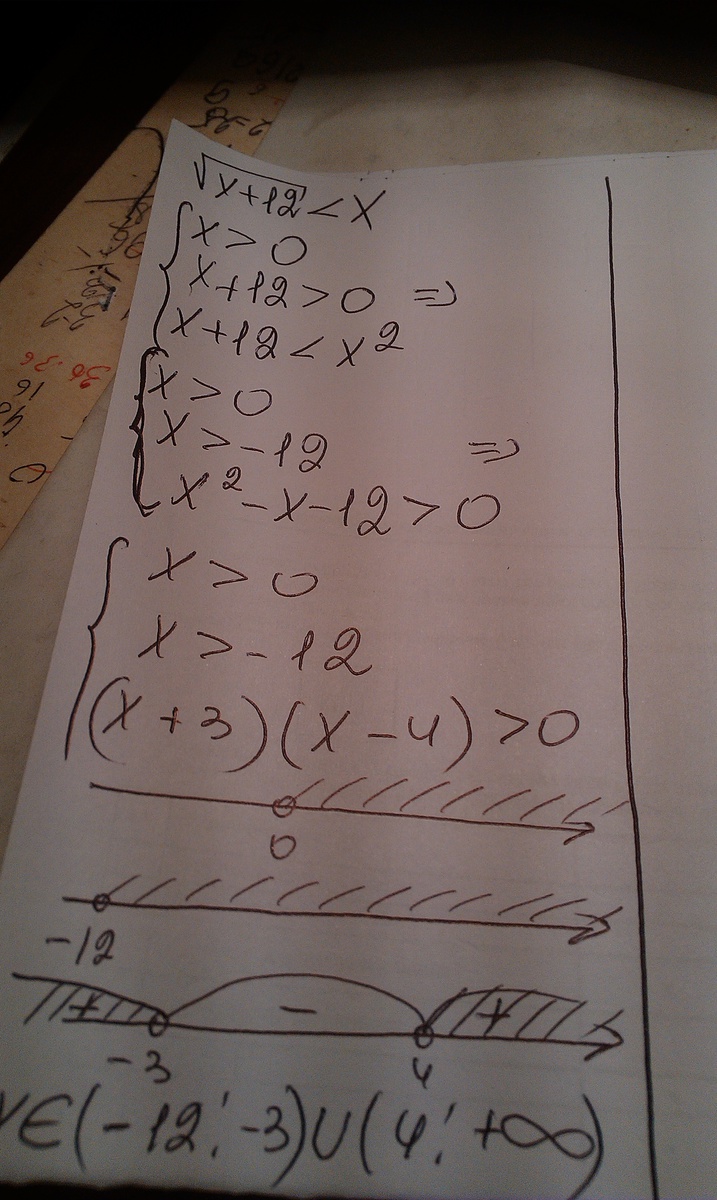 √x+12 < x
x > 0
x+12 > 0 =>
x+12 < x²
x > 0
x > -12 =>
x² - x - 12 > 0
x > 0
x > -12
(x + 3)(x - 4) > 0
0
-12
+ - +
-3 4
∈(-12; -3)∪(4; +∞)